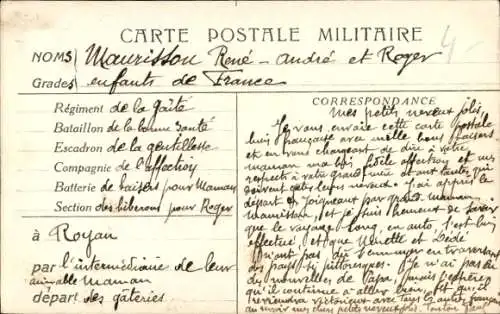 CARTE POSTALE MILITAIRE
NOMS Maurisson René - André et Roger
Grades enfants de France
4
Régiment de la gaîté
Bataillon de la bonne santé
Escadron de la gentillesse
Compagnie de l'affection
Batterie de baisers pour Maman
Section des biberons pour Roger
à Royan
par l'intermédiaire de leur
aimable Maman
départ des gâteries
CORRESPONDANCE
Mes petits neveux jolis
Je vous envoie cette carte postale
bien française avec mille bons baisers
et en vous chargeant de dire à votre
maman ma fidèle affection et mes
respects à votre grand mère et aux tantes qui
doivent gâter leurs neveux. J'ai appris le
départ de Joigneaux par grand maman
Maurisson, et je suis heureux de savoir
que le voyage long, en auto, s'est bien
effectué, et que Ninette et Dédé
n'ont pas dû s'ennuyer en traversant
des pays si pittoresques. Je n'ai pas eu
de nouvelles de Papa, mais j'espère
qu'il continue à aller bien, et qu'il
reviendra victorieux avec les autres français
au milieu de ses chers petits neveux jolis. Tonton Paul